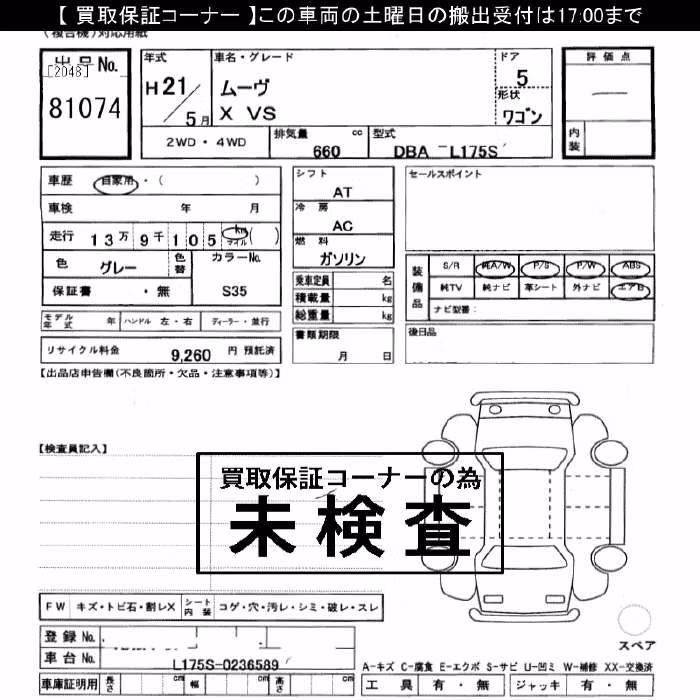 【 買取保証コーナー 】この車両の土曜日の搬出受付は17:00まで
(複合機)対応用紙
出品No.
[2048]
81074
年式
H21/5月
車名・グレード
ムーヴ
X VS
ドア
5
形状
ワゴン
評価点
内装
2WD・4WD
排気量 cc
660
型式
DBA L175S
車歴 自家用・( )
車検 年 月
走行 13万9千105 km マイル ( )
色 グレー
色替
カラーNo.
S35
保証書 ・無
モデル年式 年 ハンドル 左・右 ディーラー・並行
リサイクル料金 9,260 円 預託済
シフト
AT
冷房
AC
燃料
ガソリン
乗車定員 名
積載量 kg
総重量 kg
書類期限
月 日
セールスポイント
装備品
S/R 純A/W P/S P/W ABS
純TV 純ナビ 革シート 外ナビ エアB
ナビ型番:
後日品
【出品店申告欄(不良箇所・欠品・注意事項等)】
【検査員記入】
買取保証コーナーの為
未検査
FW キズ・トビ石・割レX シート内装 コゲ・穴・汚レ・シミ・破レ・スレ
登録No.
車台No. L175S-0236589
車庫証明用 長さ cm 幅 cm 高さ cm
スペア
A-キズ C-腐食 E-エクボ S-サビ U-凹ミ W-補修 XX-交換済
工具 有・無 ジャッキ 有・無